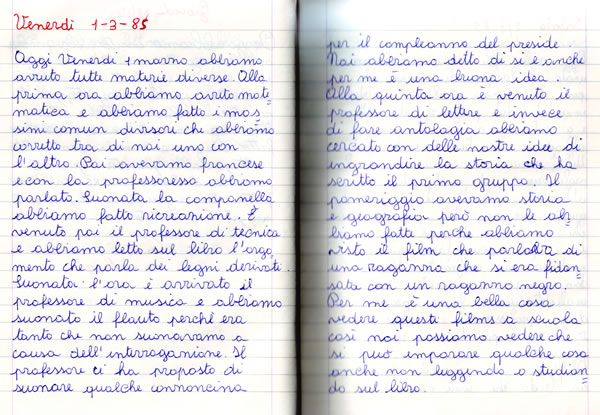 Venerdì 1-3-85
Oggi Venerdì 1 marzo abbiamo
avuto tutte materie diverse. Alla
prima ora abbiamo avuto mate=
matica e abbiamo fatto i mas=
simi comun divisori che abbiamo
corretto tra di noi uno con
l'altro. Poi avevamo francese
e con la professoressa abbiamo
parlato. Suonata la campanella
abbiamo fatto ricreazione. È
venuto poi il professore di tecnica
e abbiamo letto sul libro l'argo=
mento che parla dei legni derivati.
Suonata l'ora è arrivato il
professore di musica e abbiamo
suonato il flauto perché era
tanto che non suonavamo a
causa dell'interrogazione. Il
professore ci ha proposto di
suonare qualche canzoncina
per il compleanno del preside.
Noi abbiamo detto di sì e anche
per me è una buona idea.
Alla quinta ora è venuto il
professore di lettere e invece
di fare antologia abbiamo
cercato con delle nostre idee di
ingrandire la storia che ha
scritto il primo gruppo. Il
pomeriggio avevamo storia
e geografia però non le ab=
biamo fatte perche abbiamo
visto il film che parlava di
una ragazza che si era fidan=
zata con un ragazzo negro.
Per me è una bella cosa
vedere questi films a scuola
così noi possiamo vedere che
si può imparare qualche cosa
anche non leggendo o studian=
do sul libro.